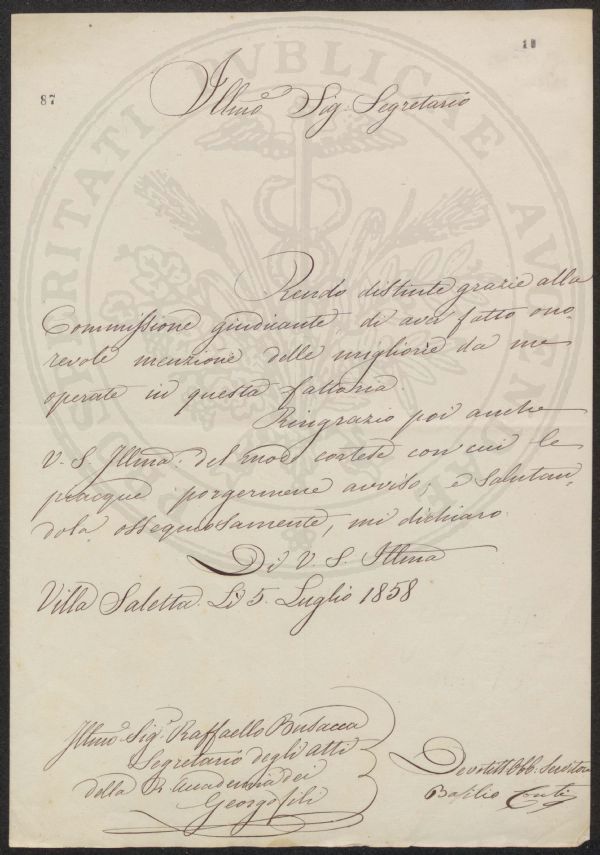 10
87
Illmo Sig. Segretario
Rendo distinte grazie alla
Commissione giudicante, di aver fatto ono,
revole menzione delle migliorie da me
operate in questa fattoria.
Ringrazio poi anche
V. S. Illma: del modo cortese con cui le
piacque porgermene avviso; e salutan,
dola ossequiosamente, mi dichiaro.
Di V. S. Illma
Villa Saletta. Li 5. Luglio 1858
Illmo Sig.r Raffaello Busacca
Segretario degli atti
della R. Accademia dei
Georgofili
Devotmo Obb. Servitore
Basilio Conti
PROSPERITATI PUBLICAE AUGENDAE